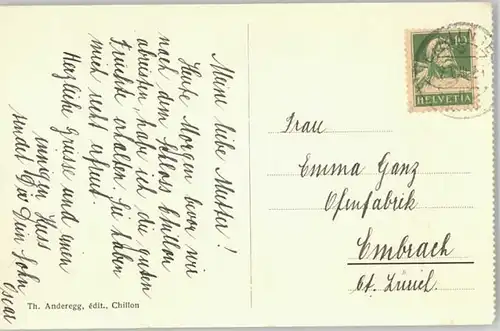 Meine liebe Mutter!
Heute Morgen bevor wir
nach dem Schloss Chillon
abreisten, habe ich die guten
Früchte erhalten. Sie haben
mich recht erfreut.
Herzliche Grüsse und einen
innigen Kuss
sendet Dir Dein Sohn
Oscar
Th. Anderegg, édit., Chillon
HELVETIA
Frau
Emma Ganz
Ofenfabrik
Embrach
Ct. Zürich.